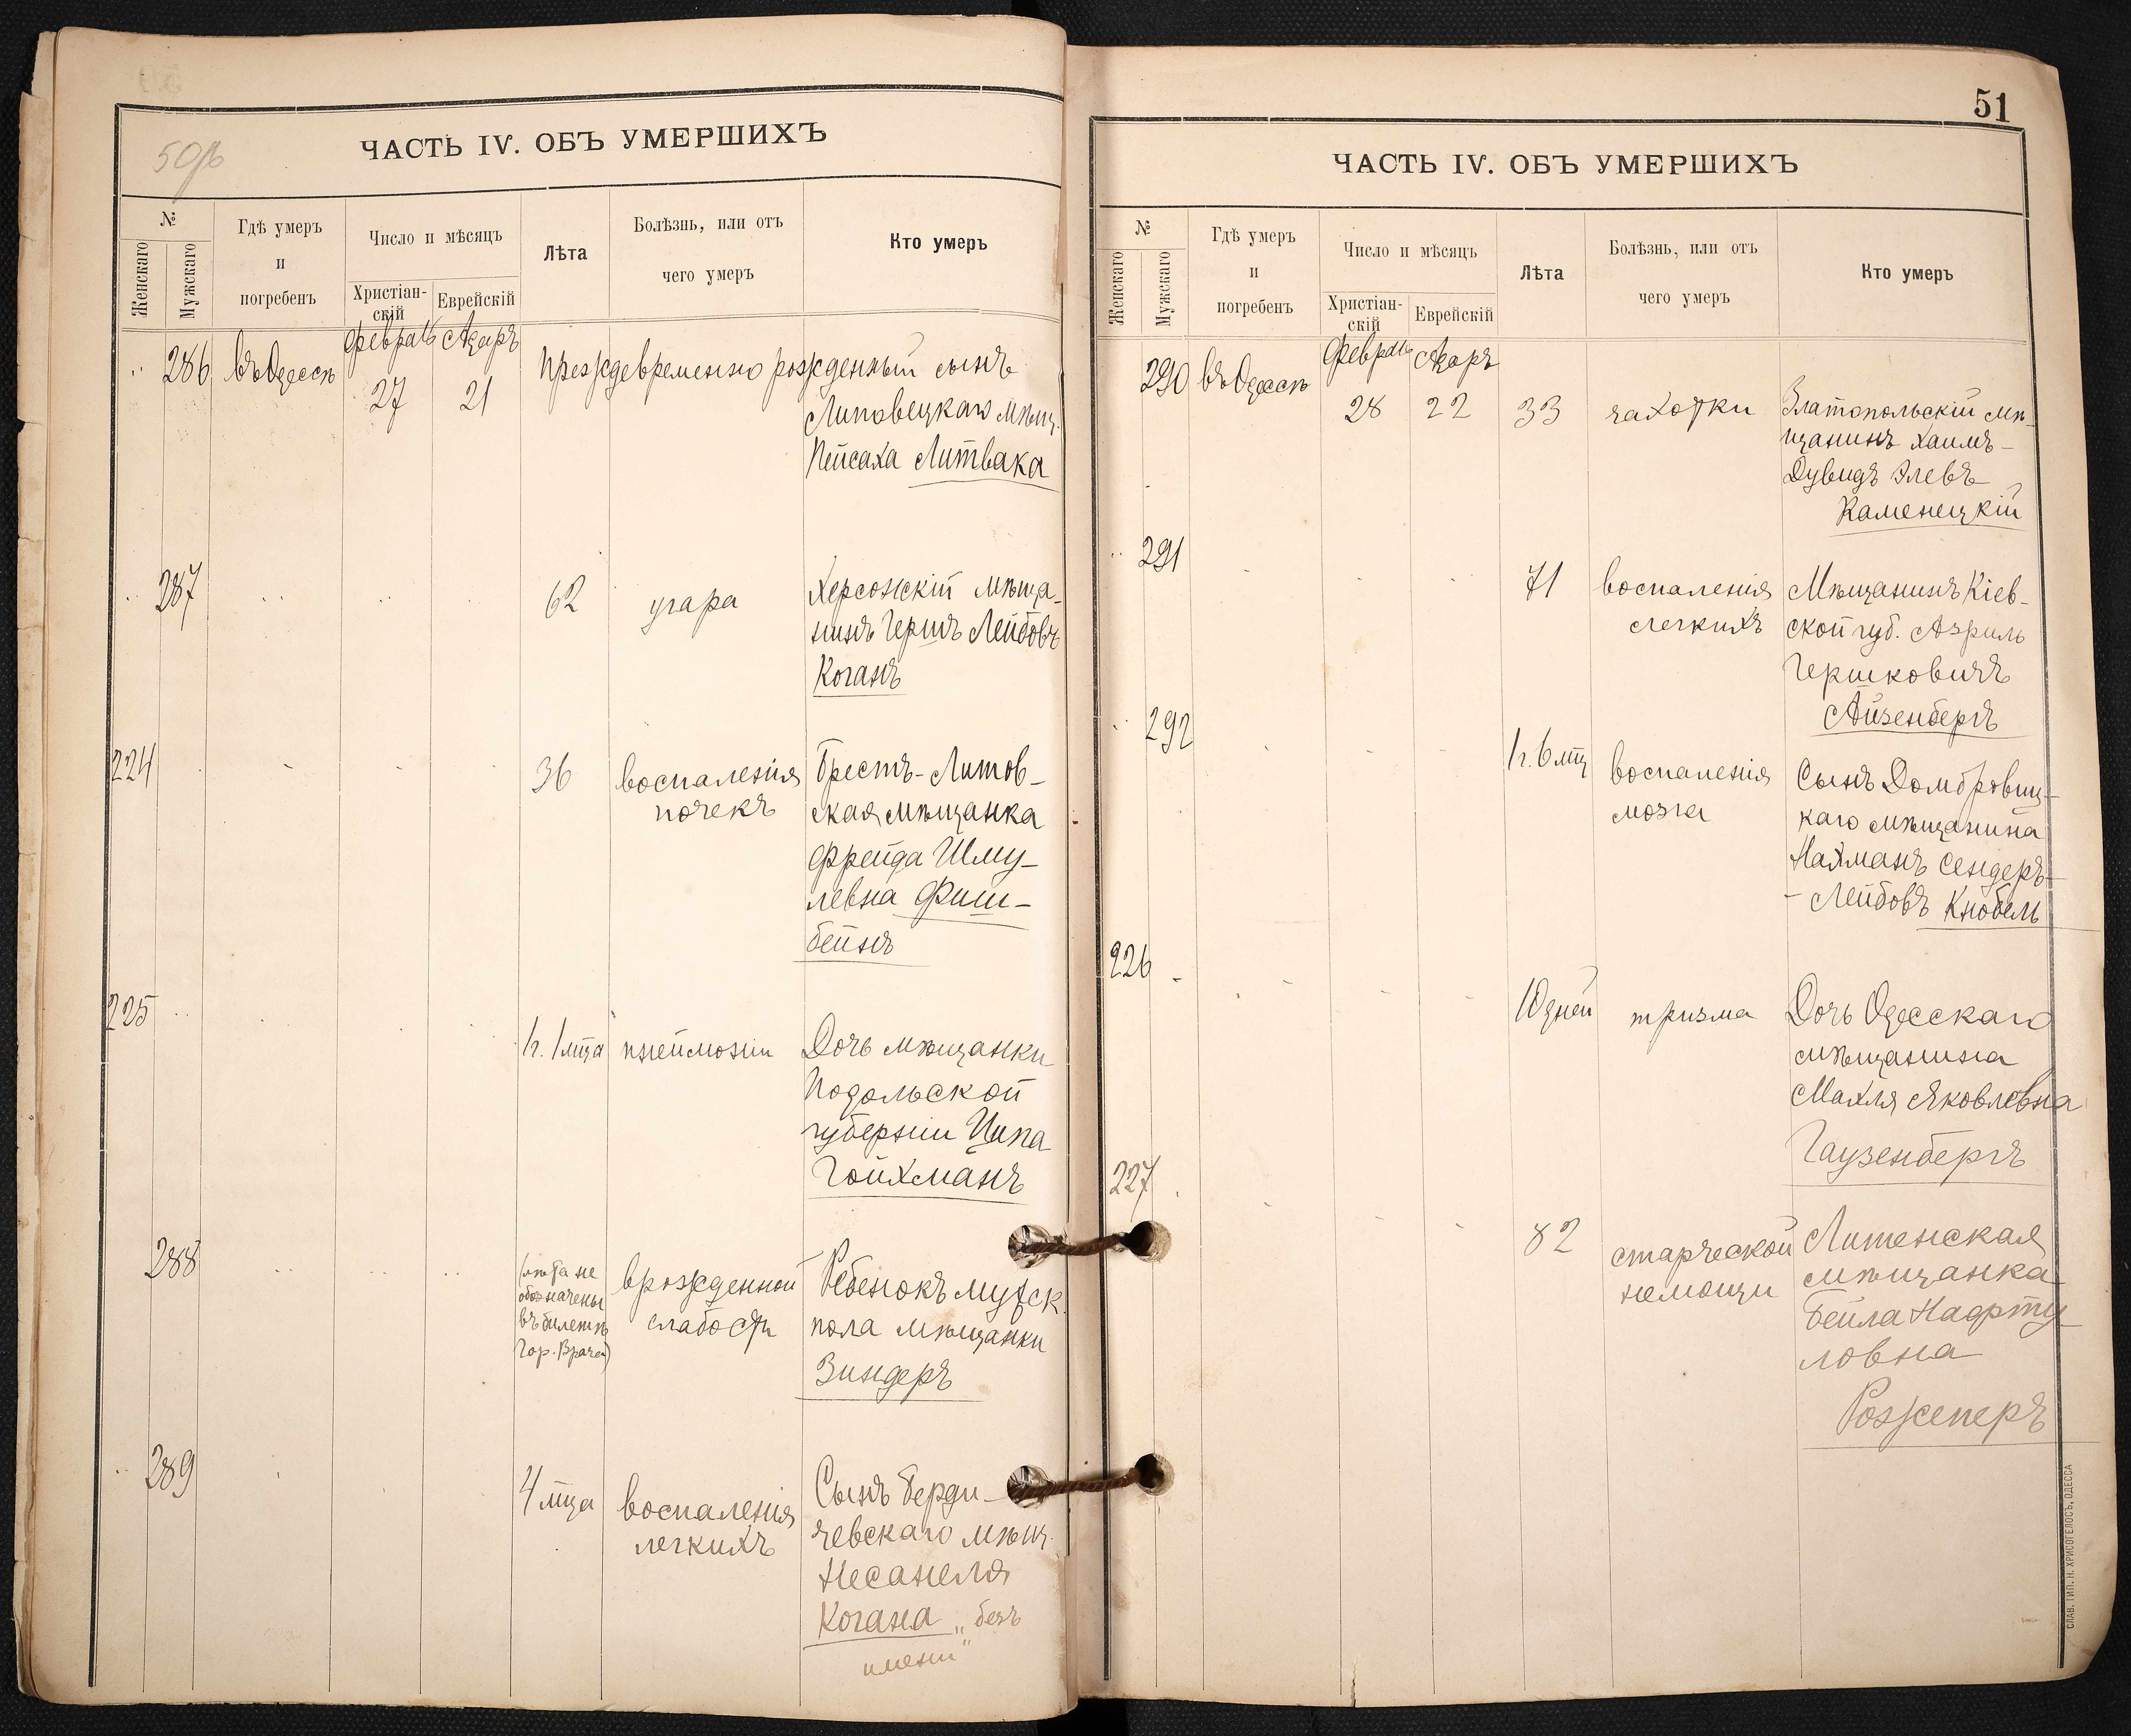 50об
ЧАСТЬ IV. ОБЪ УМЕРШИХЪ
№
Женскаго
Мужскаго
Гдѣ умеръ
и
погребенъ
Число и мѣсяцъ
Христіан-
скій
Еврейскій
Лѣта
Болѣзнь, или отъ
чего умеръ
Кто умеръ
286 въ Одессѣ Февраль Адаръ Преждевременно рожденный сынъ
27 21 Липовецкаго мѣщ.
Пейсаха Литвака
287 62 угара Херсонскій мѣща-
нинъ Гершъ Лейбовъ
Коганъ
224 36 воспаленія Брестъ-Литов-
почекъ ская мѣщанка
Фрейда Шму-
левна Фиш-
бейнъ
225 1 г. 1 мца пнеймоніи Дочь мѣщанки
Подольской
губерніи Ципа
Гойхманъ
288 (лѣта не врожденной Ребенокъ мужск.
обозначены слабости пола мѣщанки
въ билетѣ Зиндеръ
Гор. Врача)
289 4 мца воспаленія Сынъ Берди-
легкихъ чевскаго мѣщ.
Несанеля
Когана „безъ
имени"
51
ЧАСТЬ IV. ОБЪ УМЕРШИХЪ
№
Женскаго
Мужскаго
Гдѣ умеръ
и
погребенъ
Число и мѣсяцъ
Христіан-
скій
Еврейскій
Лѣта
Болѣзнь, или отъ
чего умеръ
Кто умеръ
290 въ Одессѣ Февраль Адаръ
28 22 33 чахотки Златопольскій мѣ-
щанинъ Хаимъ-
Дувидъ Элевъ
Каменецкій
291 71 воспаленія Мѣщанинъ Кіев-
легкихъ ской губ. Азриль
Гершковичъ
Айзенбергъ
292 1 г. 6 мц воспаленія Сынъ Домбровиц-
мозга каго мѣщанина
Нахманъ Сендеръ-
-Лейбовъ Кнобель
226 10 дней тризма Дочь Одесскаго
мѣщанина
Махля Яковлевна
Гаузенбергъ
227 82 старческой Литенская
немощи мѣщанка
Бейла Нафту
ловна
Розженеръ
СЛАВ. ТИП. Н. ХРИСОГЕЛОСЪ, ОДЕССА